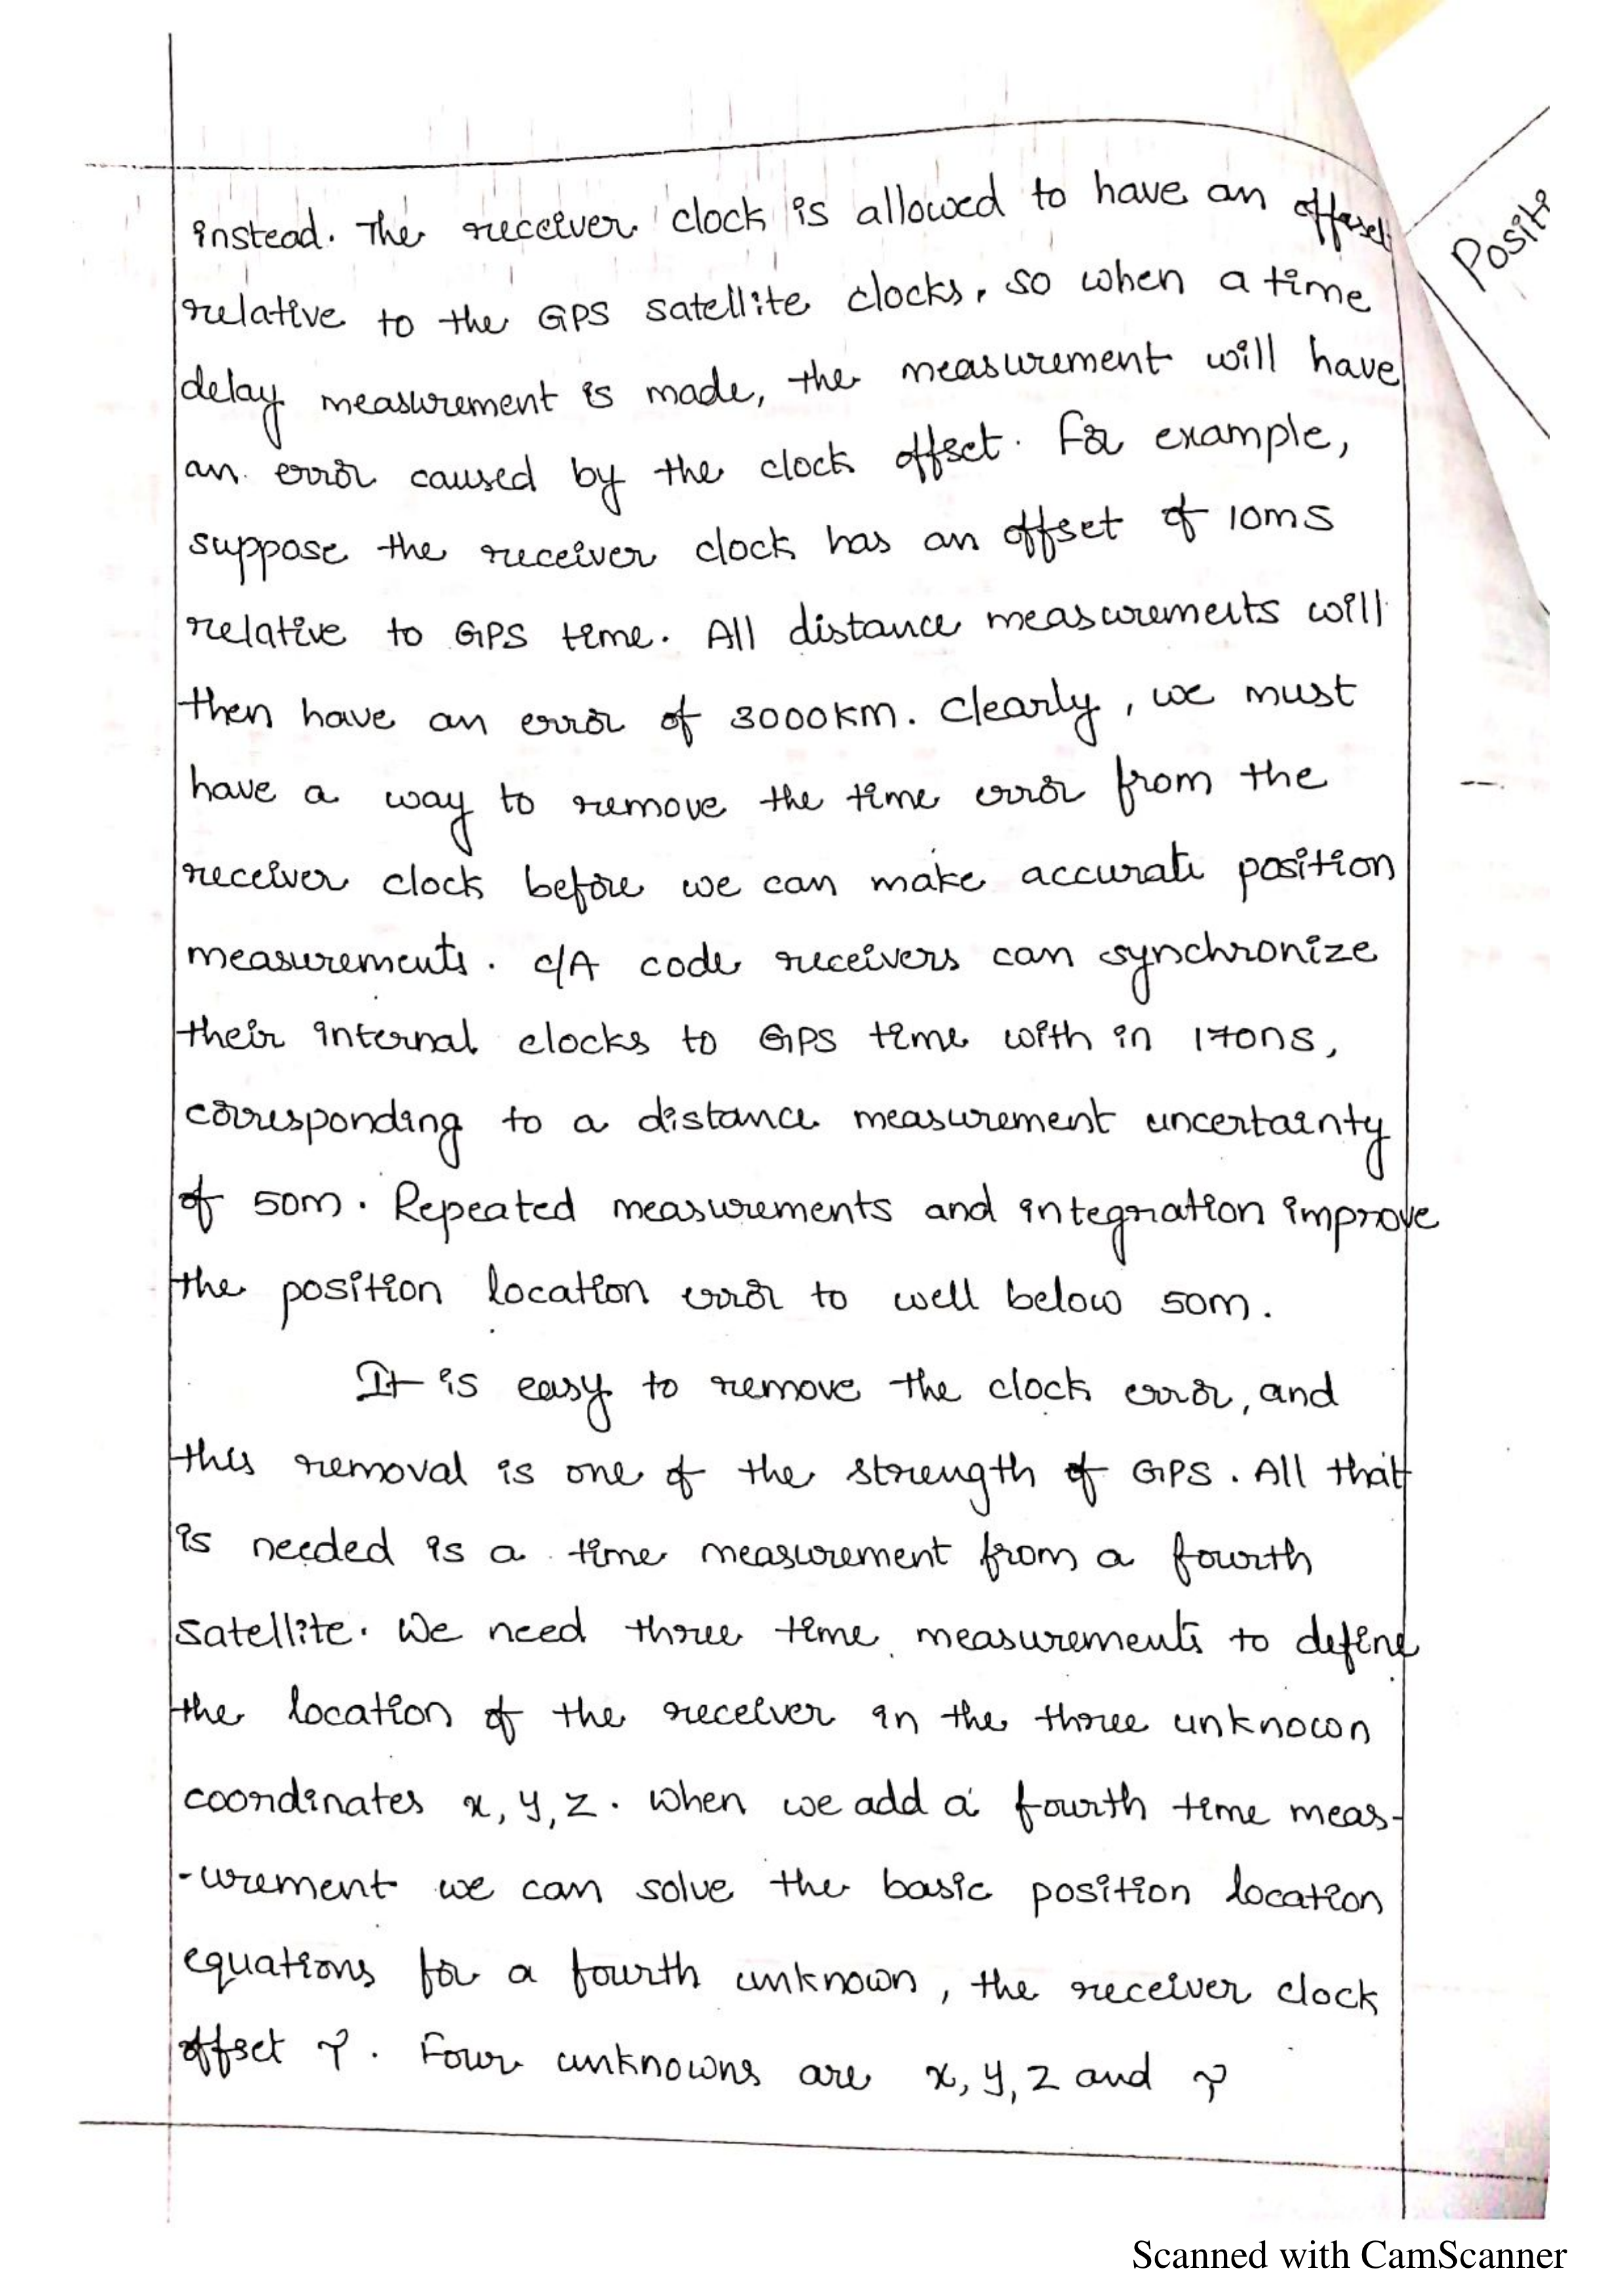 instead. The receiver clock is allowed to have an offset
Posit
relative to the GPS satellite clocks, so when a time
delay measurement is made, the measurement will have
an error caused by the clock offset. For example,
suppose the receiver clock has an offset of 10ms
relative to GPS time. All distance measuremets will
then have an error of 3000km. Clearly, we must
have a way to remove the time error from the
receiver clock before we can make accurate position
measurements. C/A code receivers can synchronize
their internal clocks to GPS time with in 170ns,
corresponding to a distance measurement uncertainty
of 50m. Repeated measurements and integration improve
the position location error to well below 50m.
It is easy to remove the clock error, and
this removal is one of the strength of GPS. All that
is needed is a time measurement from a fourth
satellite. We need three time measurements to define
the location of the receiver in the three unknown
coordinates x, y, z. When we add a fourth time meas-
-urement we can solve the basic position location
equations for a fourth unknown, the receiver clock
offset τ. Four unknowns are x, y, z and τ
Scanned with CamScanner